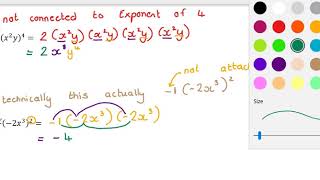 not connected to Exponent of 4
(x²y)⁴ = 2 (x²y) (x²y) (x²y) (x²y)
= 2 x⁸y⁴
not attac
-1(-2x³)²
technically this actually
(-2x³)² = -1(-2x³)(-2x³)
= -4
Size